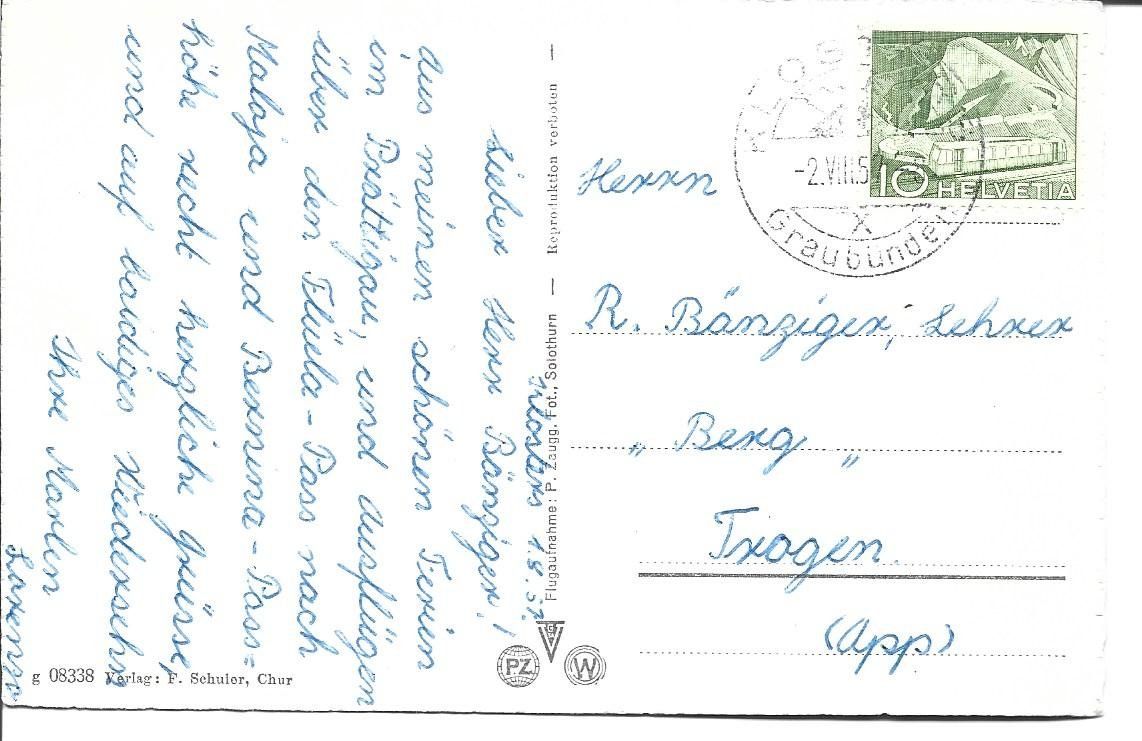 Klosters 1.8.57.
Lieber Herr Bänziger!
Aus meinen schönen Ferien
im Prättigau, und Ausflügen
über den Flüela-Pass nach
Maloja und Bernina-Pass=
höhe recht herzliche Grüsse,
und auf baldiges Wiedersehn
Ihre Marlen
Lorenzo
g 08338 Verlag: F. Schuler, Chur
Flugaufnahme: P. Zaugg, Fot., Solothurn — Reproduktion verboten —
PZ
W
10 HELVETIA
-2.VIII.5
X
Graubünden
Herrn
R. Bänziger, Lehrer
„Berg"
Trogen.
(App)